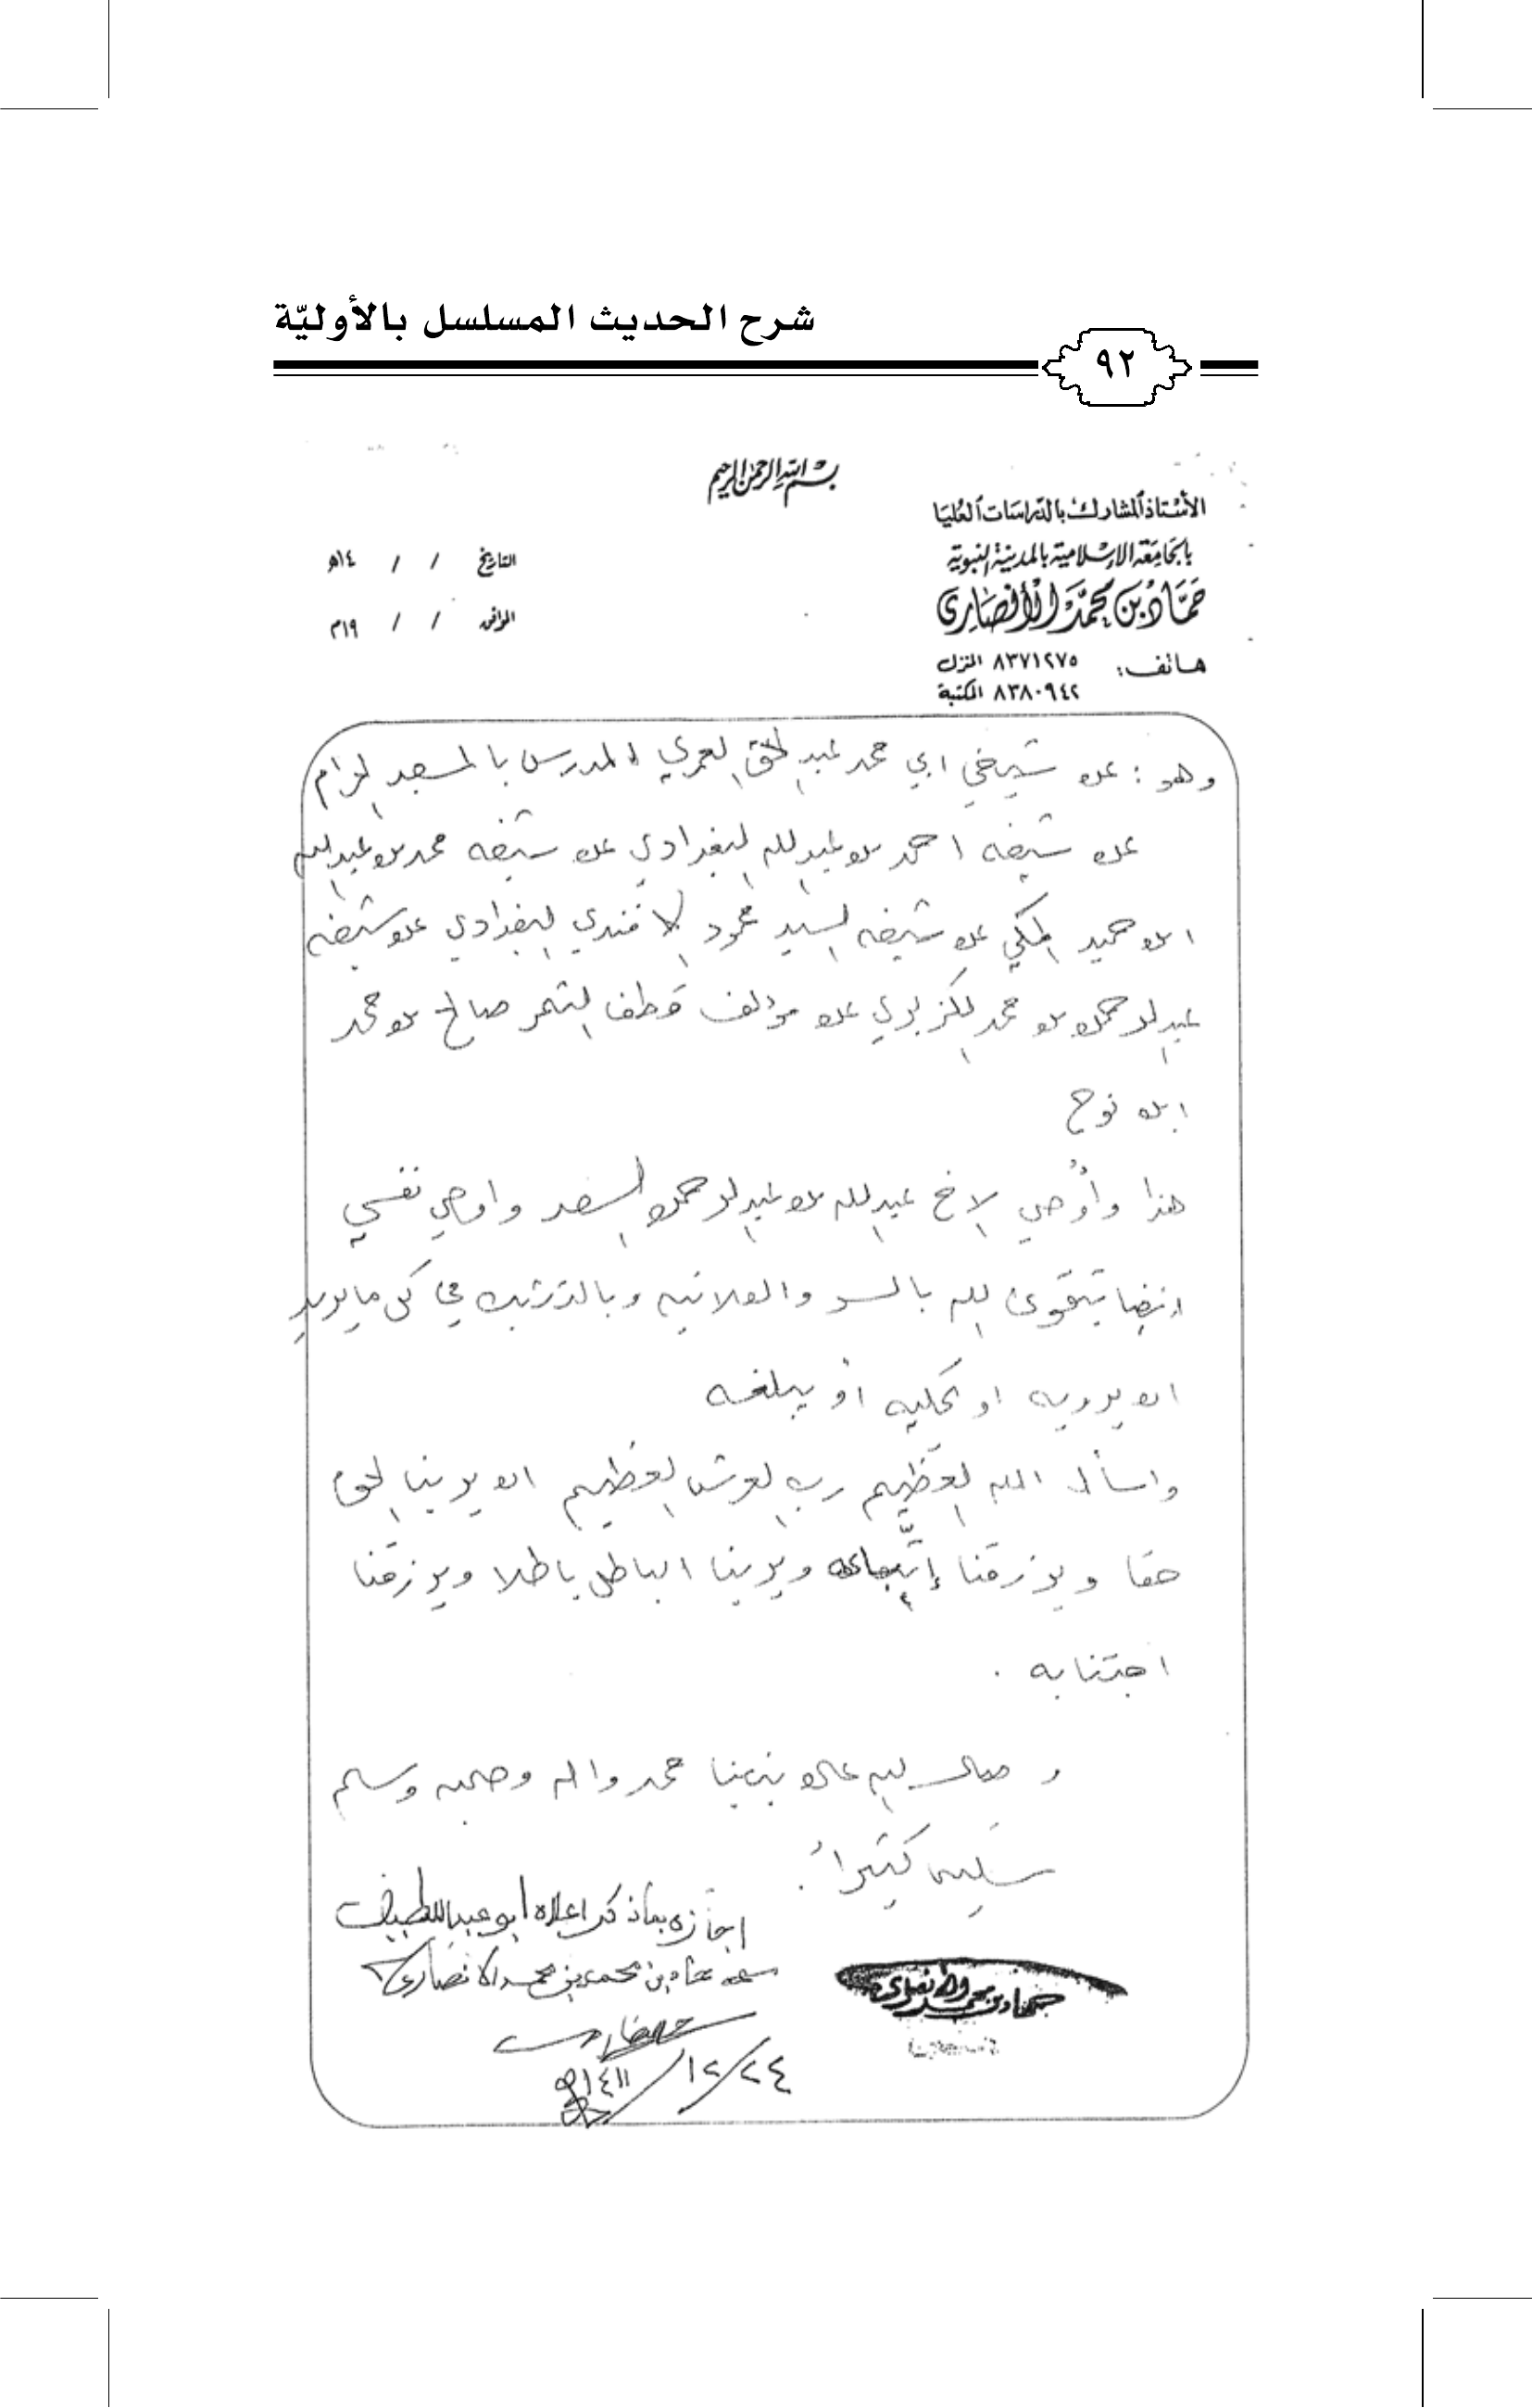 شرح الحديث المسلسل بالأوليّة
٩٢
بسم الله الرحمن الرحيم
الأستاذ المشارك بالدراسات العليا
بالجامعة الإسلامية بالمدينة النبوية
حمّاد بن محمّد الأنصاري
هاتف: ٨٣٧١٢٧٥ المنزل
٨٣٨٠٩٤٢ المكتبة
التاريخ / / ١٤هـ
الموافق / / ١٩م
وهو : عن شيخي ابي محمد عبد الحق العمري المدرس بالمسجد الحرام
عن شيخه احمد بن عبد الله البغدادي عن شيخه محمد بن عبد الله
ابن حميد المكي عن شيخه السيد محمود الافندي البغدادي عن شيخه
عبد الرحمن بن محمد الكزبري عن مؤلف قطف الثمر صالح بن محمد
ابن نوح
هذا وأُوصي الاخ عبد الله بن عبد الرحمن السعد واوصي نفسي
ايضا بتقوى الله بالسر والعلانيه وبالتثبت في كل ما يريد
ان يرويه او يحكيه أو يبلغه
واسأل الله العظيم رب العرش العظيم ان يرينا الحق
حقا ويرزقنا إتّباعه ويرينا الباطل باطلا ويرزقنا
اجتنابه .
و صلى الله على نبينا محمد واله وصحبه وسلم
تسليما كثيراً .
اجازه بما ذكر اعلاه ابو عبد اللطيف
حماد بن محمد بن محمد الانصاري
حماد بن محمد الأنصاري
٢٤/١٢/١٤١١هـ